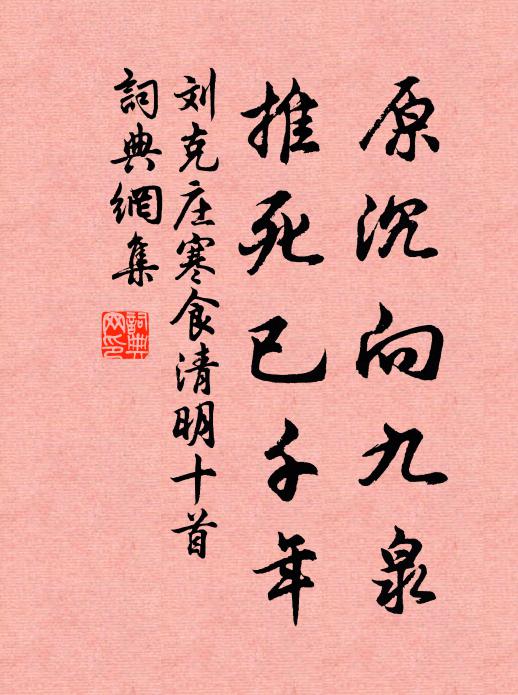 原沉向九泉
推死已千年
刘克庄寒食清明十首
詞典網集
詞典網印